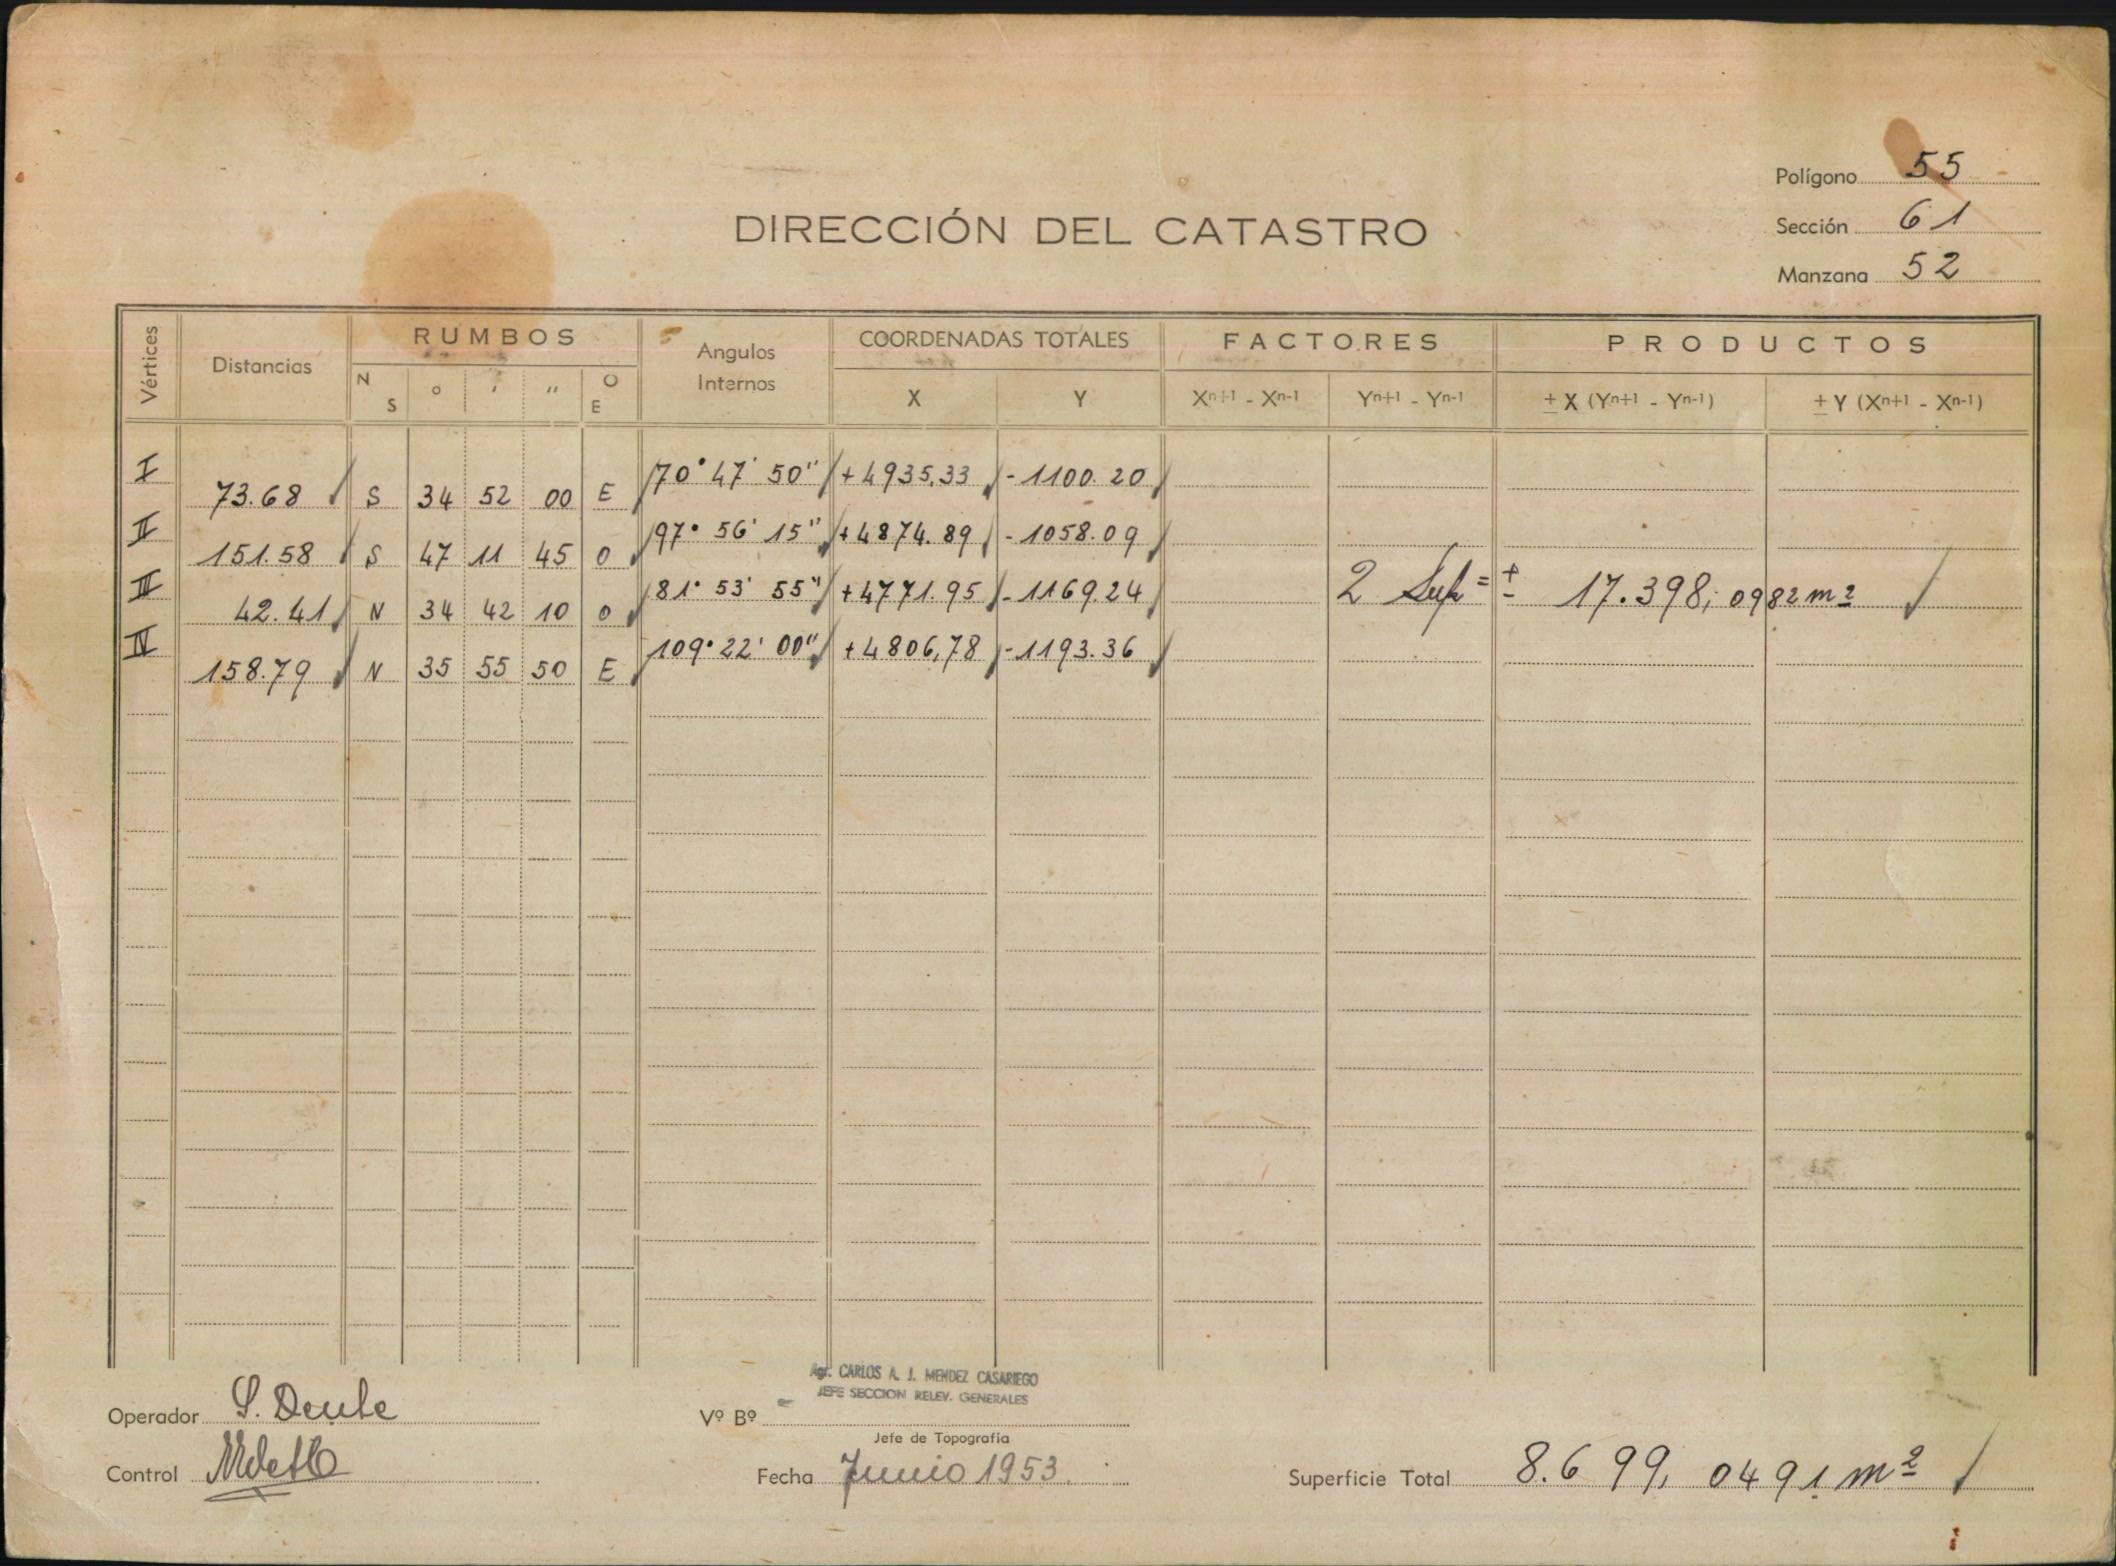 Polígono 55
DIRECCIÓN DEL CATASTRO
Sección 61
Manzana 52
Vértices Distancias RUMBOS N S o ' " O E Angulos Internos COORDENADAS TOTALES X Y FACTORES Xn+1 - Xn-1 Yn+1 - Yn-1 PRODUCTOS ± X (Yn+1 - Yn-1) ± Y (Xn+1 - Xn-1)
I 70° 47' 50" +4935,33 -1100.20
73.68 S 34 52 00 E
II 97° 56' 15" +4874.89 -1058.09
151.58 S 47 11 45 O
III 81° 53' 55" +4771.95 -1169.24 2 Sup = ± 17.398,0982 m2
42.41 N 34 42 10 O
IV 109° 22' 00" +4806,78 -1193.36
158.79 N 35 55 50 E
Agr. CARLOS A. J. MENDEZ CASARIEGO
JEFE SECCION RELEV. GENERALES
Operador S. Dente Vº Bº
Jefe de Topografía
Control Fecha Junio 1953 Superficie Total 8.699,0491 m2